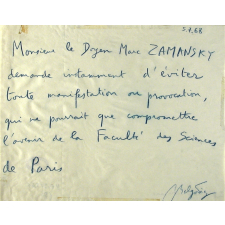 5.1.68
Monsieur le Doyen Marc ZAMANSKY
demande instamment d'éviter
toute manifestation ou provocation,
qui ne pourrait que compromettre
l'avenir de la Faculté des Sciences
de Paris